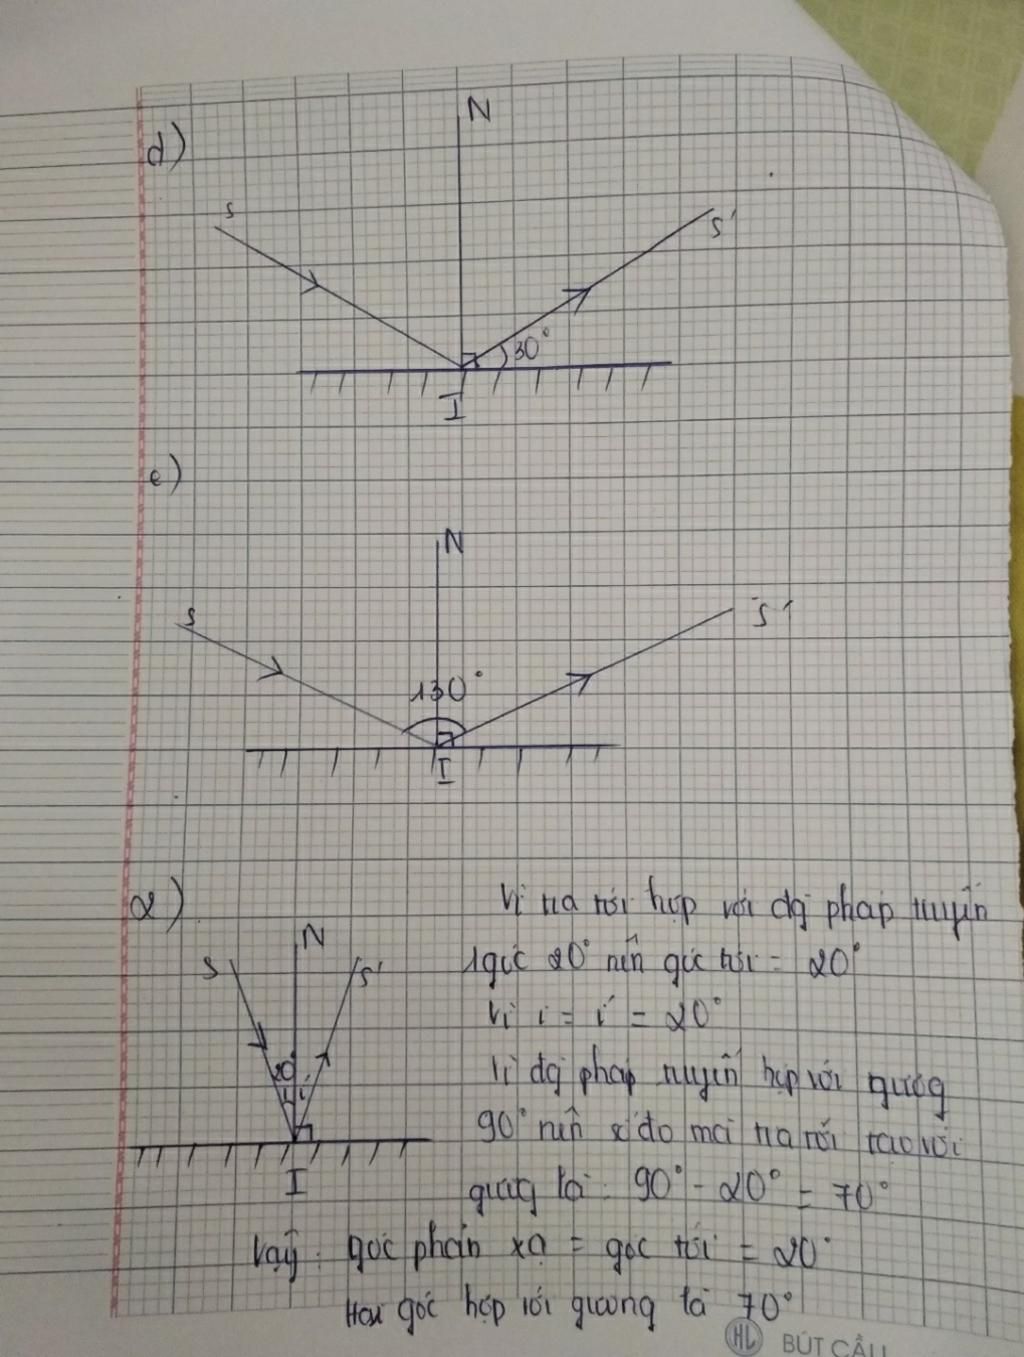 d)
N
S
S'
30°
I
e)
N
S
S'
130°
I
a)
N
S
S'
20°
i i'
I
Vì tia tới hợp với đg pháp tuyến
1 góc 20° nên góc tới = 20°
Vì i = i' = 20°
Vì đg pháp tuyến hợp với gương
90° nên số đo mà tia tới tạo với
gương là : 90° - 20° = 70°
Vậy : góc phản xạ = góc tới = 20°
góc hợp với gương là 70°
HL BÚT CẦU